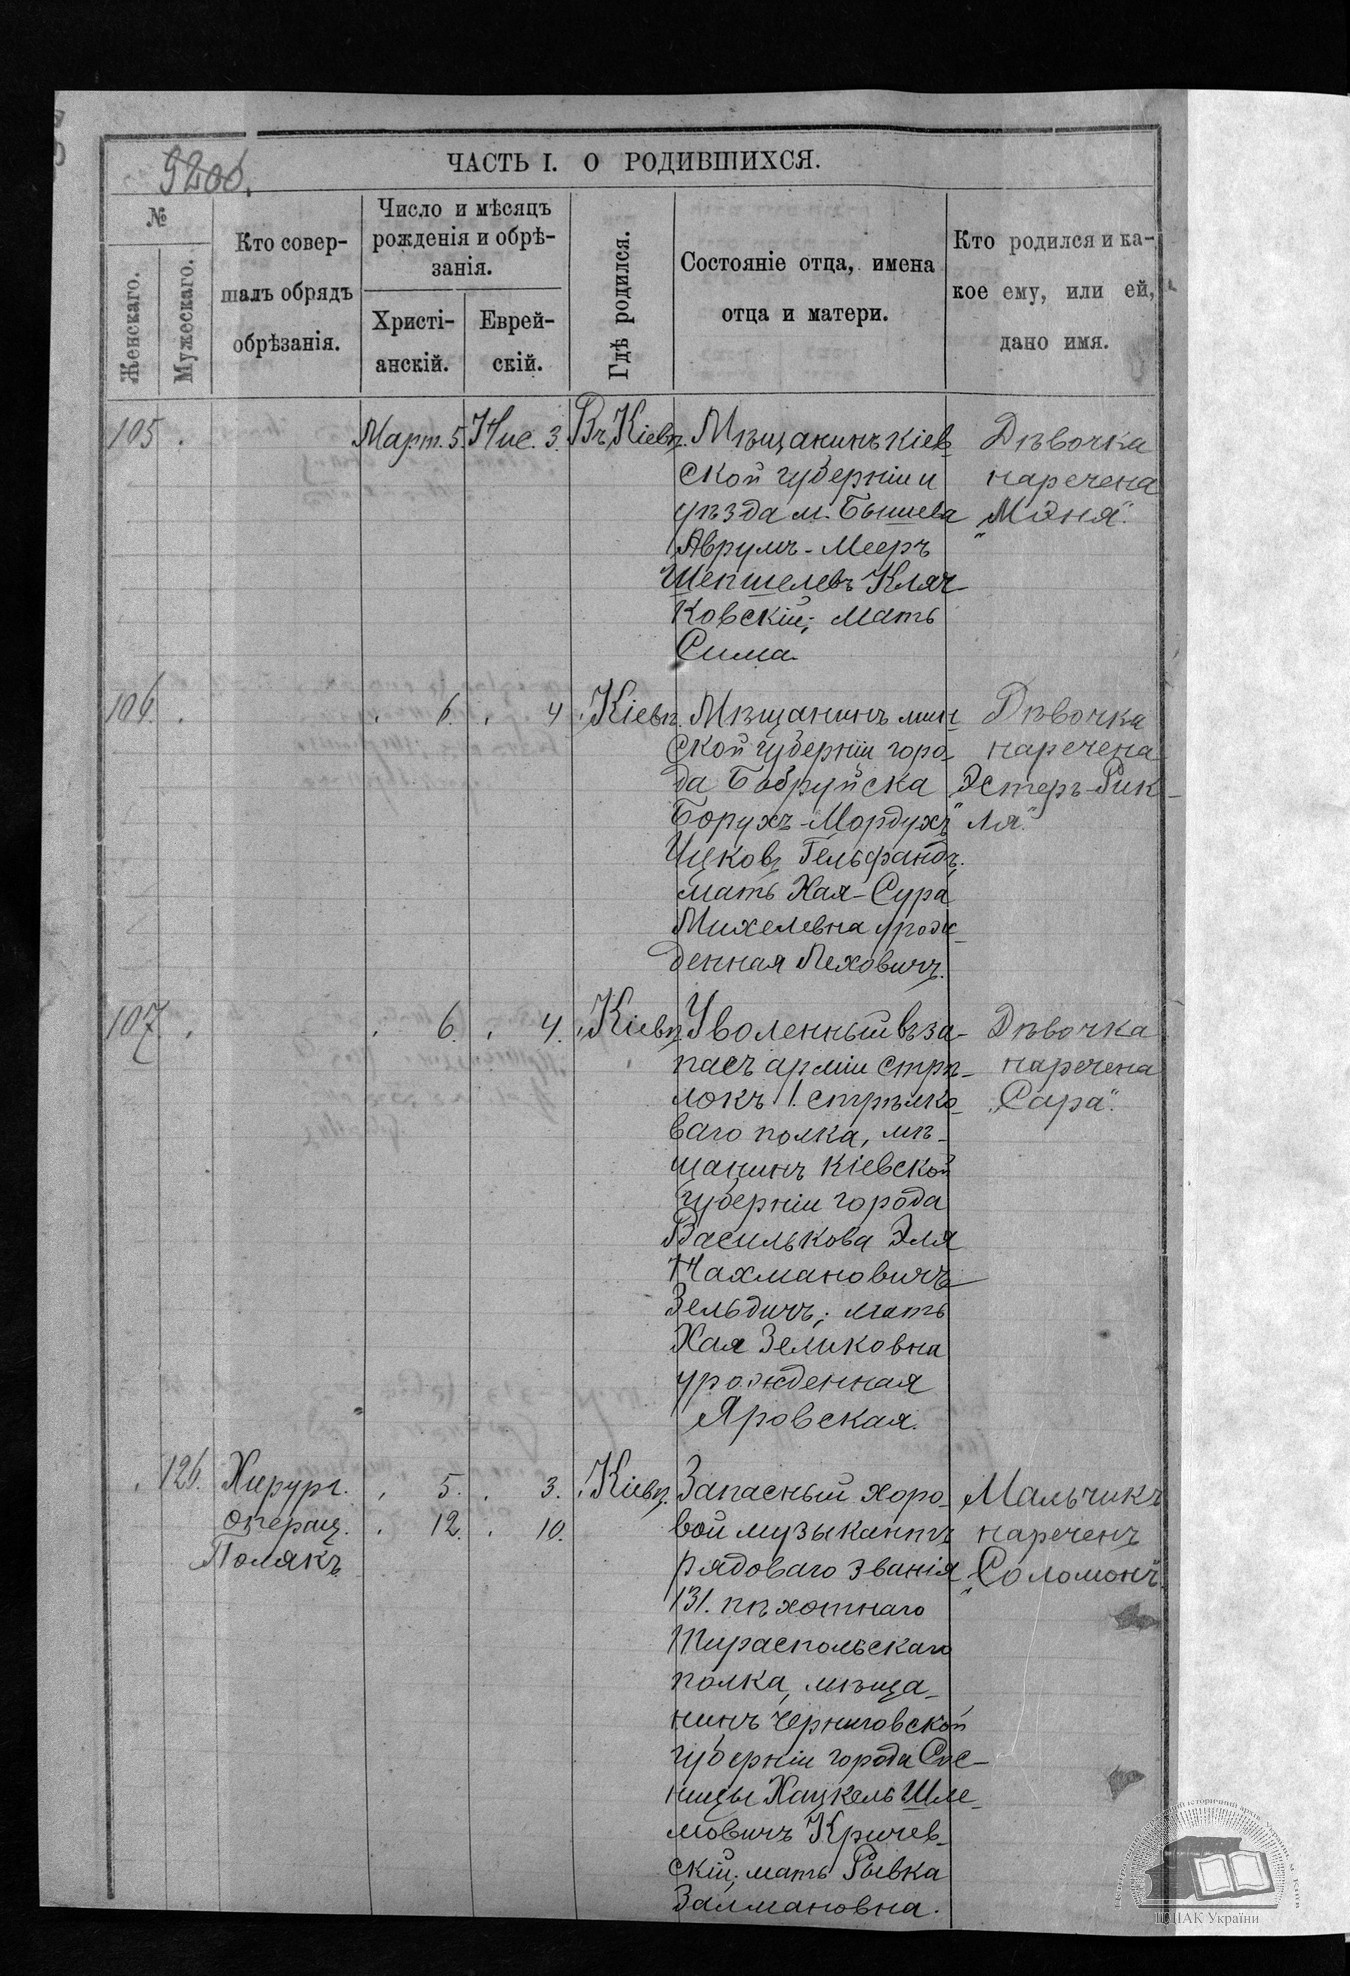 920б.
ЧАСТЬ I. О РОДИВШИХСЯ.
№
Женскаго.
Мужескаго.
Кто совер-
шалъ обрядъ
обрѣзанія.
Число и мѣсяцъ
рожденія и обрѣ-
занія.
Христі-
анскій.
Еврей-
скій.
Гдѣ родился.
Состояніе отца, имена
отца и матери.
Кто родился и ка-
кое ему, или ей,
дано имя.
105.
Март. 5.
Нис. 3.
Въ Кіевѣ
Мѣщанинъ кіев-
ской губерніи и
уѣзда м. Бышева
Аврумъ-Мееръ
Шепшелевъ Кляч-
ковскій; мать
Сима.
Дѣвочка
наречена
„Маня“.
106.
6.
4
Кіевѣ
Мѣщанинъ мин-
ской губерніи горо-
да Бобруйска
Борухъ-Мордухъ
Ицковъ Гельфандъ,
мать Хая-Сура
Михелевна урож-
денная Леховичъ.
Дѣвочка
наречена
„Эстеръ-Рик-
ля“.
107.
6.
4.
Кіевѣ
Уволенный въ за-
пасъ арміи стрѣ-
локъ 1. стрѣлко-
ваго полка, мѣ-
щанинъ кіевской
губерніи города
Василькова Эля
Нахмановичъ
Зельдичъ; мать
Хая Зеликовна
урожденная
Яровская.
Дѣвочка
наречена
„Сара“.
126.
Хирург.
операц.
Полякъ
5.
12.
3.
10.
Кіевѣ.
Запасный хоро-
вой музыкантъ
рядоваго званія
131. пѣхотнаго
Тираспольскаго
полка, мѣща-
нинъ черниговской
губерніи города Сос-
ницы Хацкель Шле-
мовичъ Кричев-
скій; мать Рывка
Залмановна.
Мальчикъ
нареченъ
„Соломонъ“
ЦДІАК України